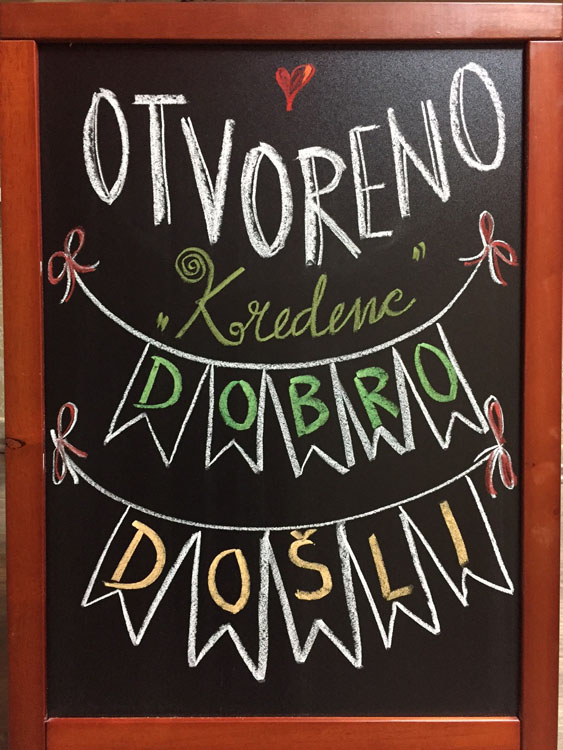 OTVORENO
„Kredenc”
DOBRO
DOŠLI